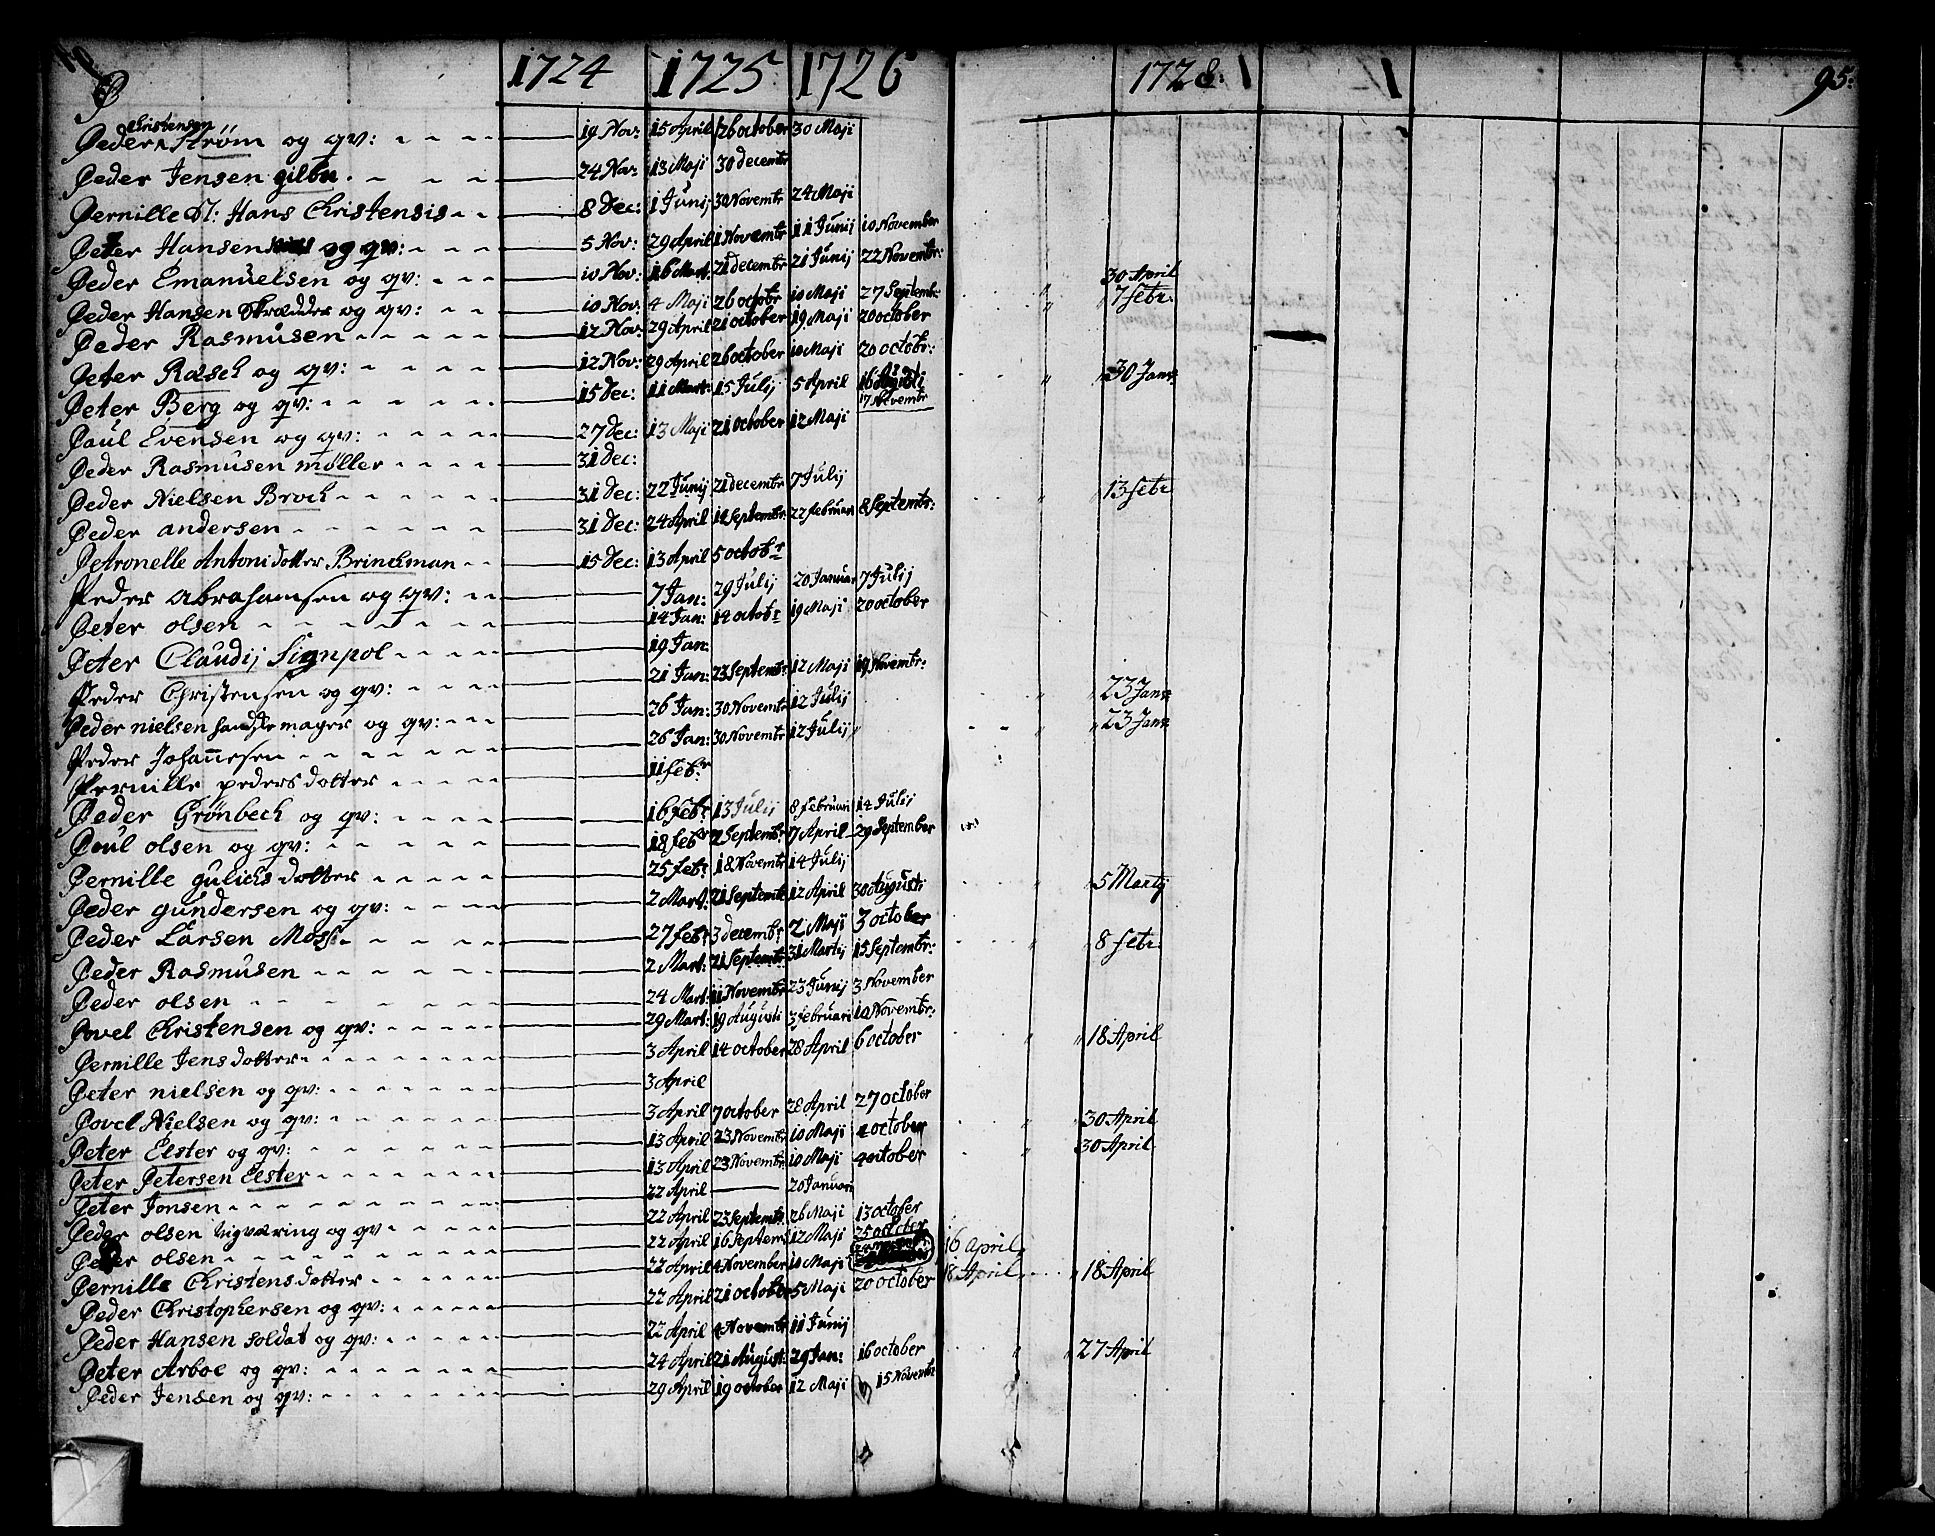 P
1724 1725 1726 1728 95.
Christensen
Peder Strøm og qv: 19 Nov: 15 April 26 october 30 Maji
Peder Jensen gilbu 24 Nov: 13 Maji 30 decembr
Pernille Sl: Hans Christensis 8 Dec: 1 Junij 30 Novembr 24 Maji
Peter Hansen og qv: 5 Nov: 29 April 1 Novembr 11 Junij 10 November
Peder Emanuelsen og qv: 10 Nov: 16 Mart: 21 decembr 21 Junij 22 Novembr: 30 April
Peder Hansen Skrædder og qv: 10 Nov: 4 Maji 26 octobr 10 Maji 27 Septembr: 7 febr:
Peder Rasmusen 12 Nov: 29 April 21 october 19 Maji 20 october
Peter Rasch og qv: 12 Nov: 29 April 26 october 10 Maji 20 octobr: 30 Janr
Peter Berg og qv: 15 Dec: 11 Mart: 15 Julij 5 April 16 Augusti
17 Novembr
Paul Evensen og qv: 27 Dec: 13 Maji 21 october 12 Maji
Peder Rasmusen møller 31 Dec:
Peder Nielsen Broch 31 Dec: 22 Junij 21 decembr 7 Julij 13 febr
Peder andersen 31 Dec: 24 April 14 Septembr 22 februari 8 Septembr:
Petronelle Antonidotter Brinchman 15 Dec: 13 April 5 octobr
Peder Abrahamsen og qv: 7 Jan: 29 Julij 20 Januari 7 Julij
Peter olsen 14 Jan: 14 octobr 19 Maji 20 october
Peter Claudij Signpol 19 Jan:
Peder Christensen og qv: 21 Jan: 23 Septembr 12 Maji 19 Novembr: 23 Janr
Peder nielsen handskemager og qv: 26 Jan: 30 Novembr 12 Julij 23 Janr
Peder Johannesen 26 Jan: 30 Novembr 12 Julij
Pernille pedersdotter 11 febr
Peder Grønbech og qv: 16 febr 13 Julij 8 februari 14 Julij
Poul olsen og qv: 18 febr 2 Septembr 17 April 29 September
Pernille gulichsdotter 25 febr 18 Novembr 14 Julij
Peder gundersen og qv: 2 Mart: 21 Septembr 12 April 30 Augusti 5 Martij
Peder Larsen Moss 27 febr 3 decembr 2 Maji 3 october
Peder Rasmusen 2 Mart: 21 Septembr 31 Martij 15 Septembr: 8 febr
Peder olsen 24 Mart: 11 Novembr 23 Junij 3 November
Povel Christensen og qv: 29 Mart: 19 Augusti 3 februari 10 Novembr:
Pernille Jensdotter 3 April 14 october 28 April 6 october 18 April
Peter nielsen og qv: 3 April
Povel Nielsen og qv: 3 April 7 october 28 April 27 october
Peter Elster og qv: 13 April 23 Novembr 10 Maji 4 october 30 April
Peter Petersen Elster 13 April 23 Novembr 10 Maji 4 october 30 April
Peter Jonsen 22 April 20 Januari
Peder olsen Nigværing og qv 22 April 23 Septembr 26 Maji 13 october
Peter olsen 22 April 16 Septembr 12 Maji 25 october
Pernille Christensdotter 22 April 4 November 10 Maji 16 April
Peder Christophersen og qv: 22 April 21 october 5 Maji 20 october 18 April 18 April
Peder Hansen soldat og qv: 22 April 4 Novembr 11 Junij
Peter Arboe og qv: 24 April 21 August: 29 Jan: 16 october 27 April
Peder Jensen og qv: 29 April 19 october 12 Maji 15 Novembr